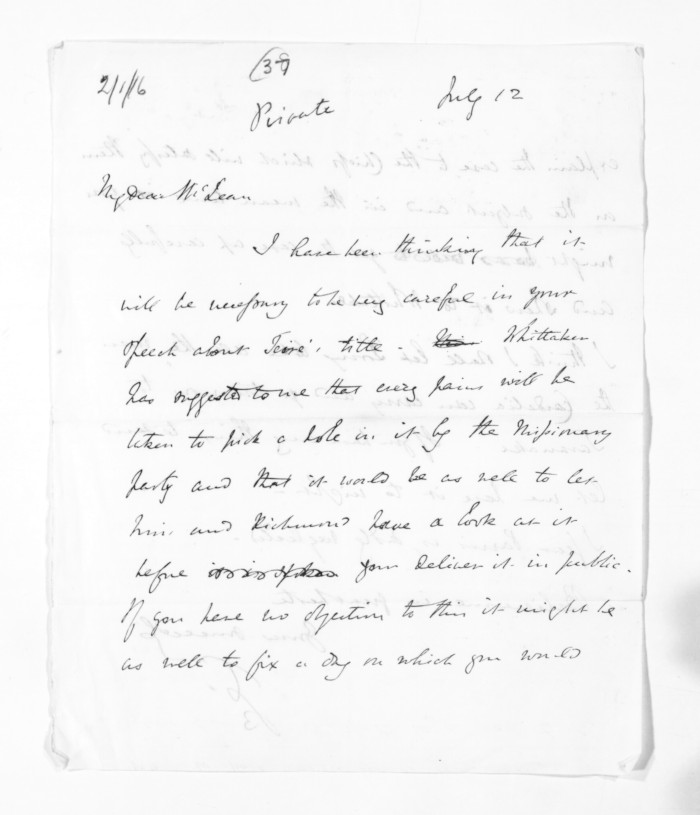 2/1/16
(39)
Private
July 12
My Dear McLean
I have been thinking that it
will be necessary to be very careful in your
speech about Teira's title - Whittaker
has suggested to me that every pains will be
taken to pick a hole in it by the Missionary
party and that it would be as well to let
him and Richmond have a look at it
before you deliver it in public.
If you have no objection to this it might be
as well to fix a day on which you would